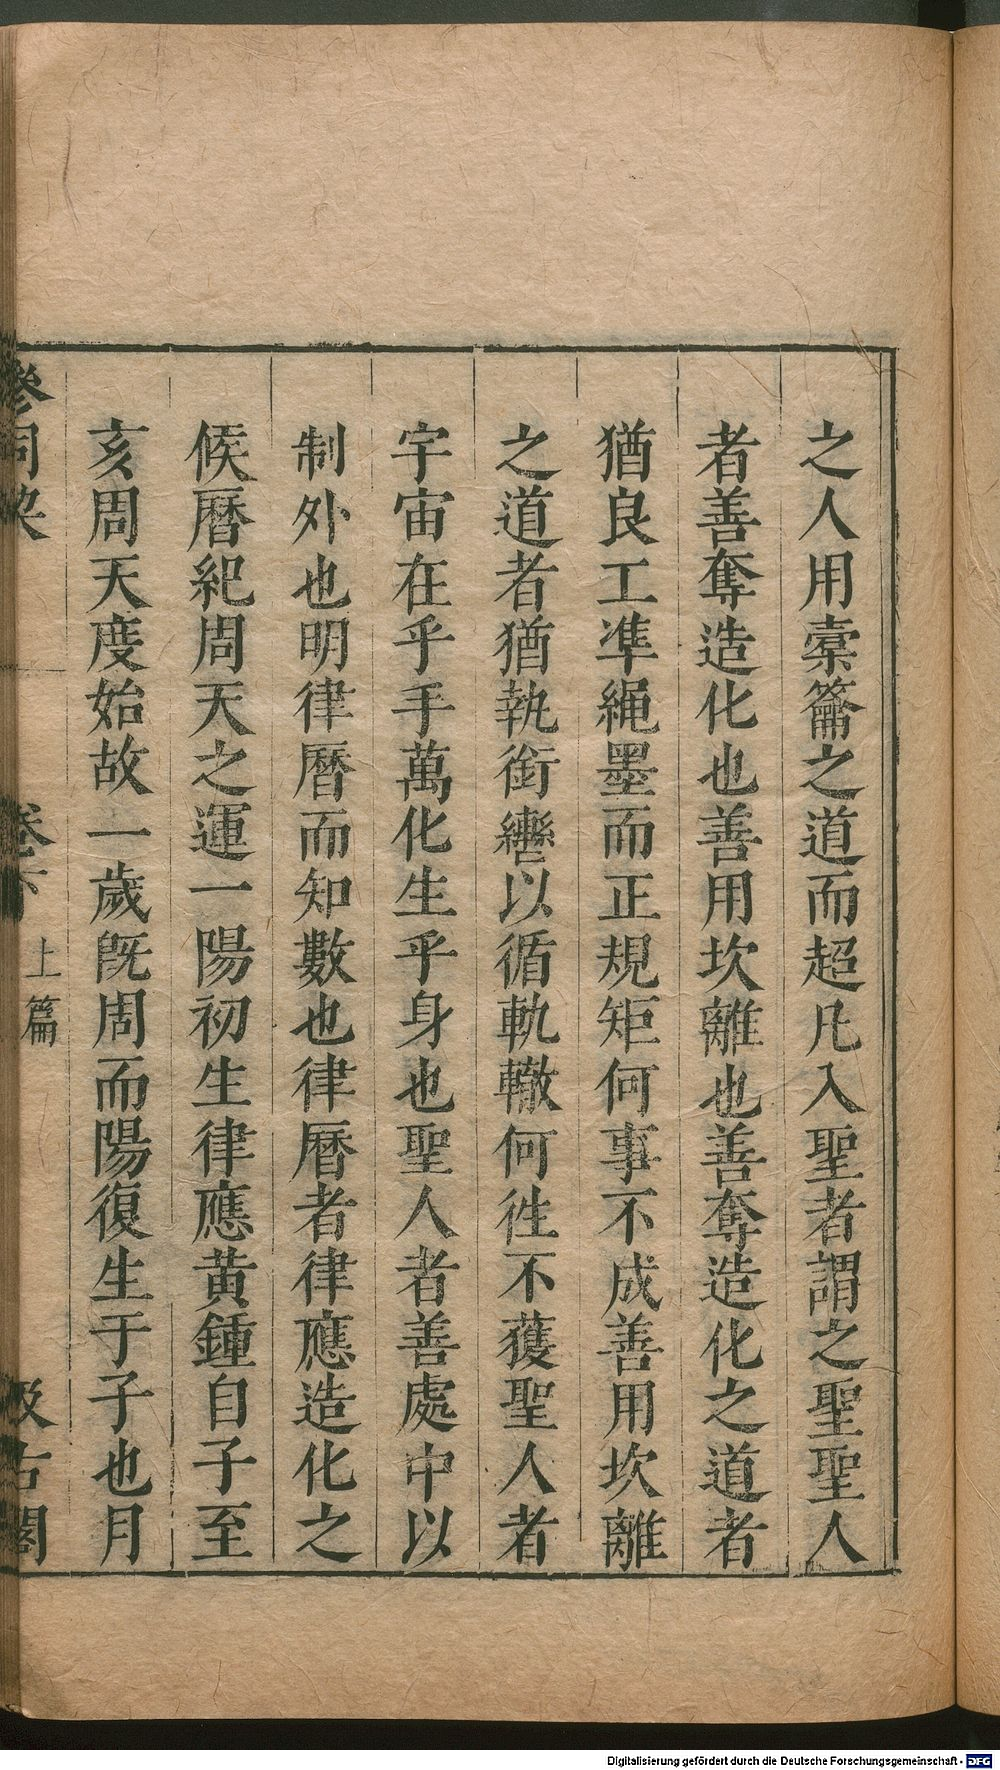 之人用槖籥之道而超凡入聖者謂之聖聖人
者善奪造化也善用坎離也善奪造化之道者
猶良工凖繩墨而正規矩何事不成善用坎離
之道者猶執銜轡以循軌轍何徃不獲聖人者
宇宙在乎手萬化生乎身也聖人者善處中以
制外也明律曆而知數也律曆者律應造化之
候曆紀周天之運一陽初生律應黃鍾自子至
亥周天度始故一歲旣周而陽復生于子也月
參同契 卷下 上篇 汲古閣
Digitalisierung gefördert durch die Deutsche Forschungsgemeinschaft - DFG